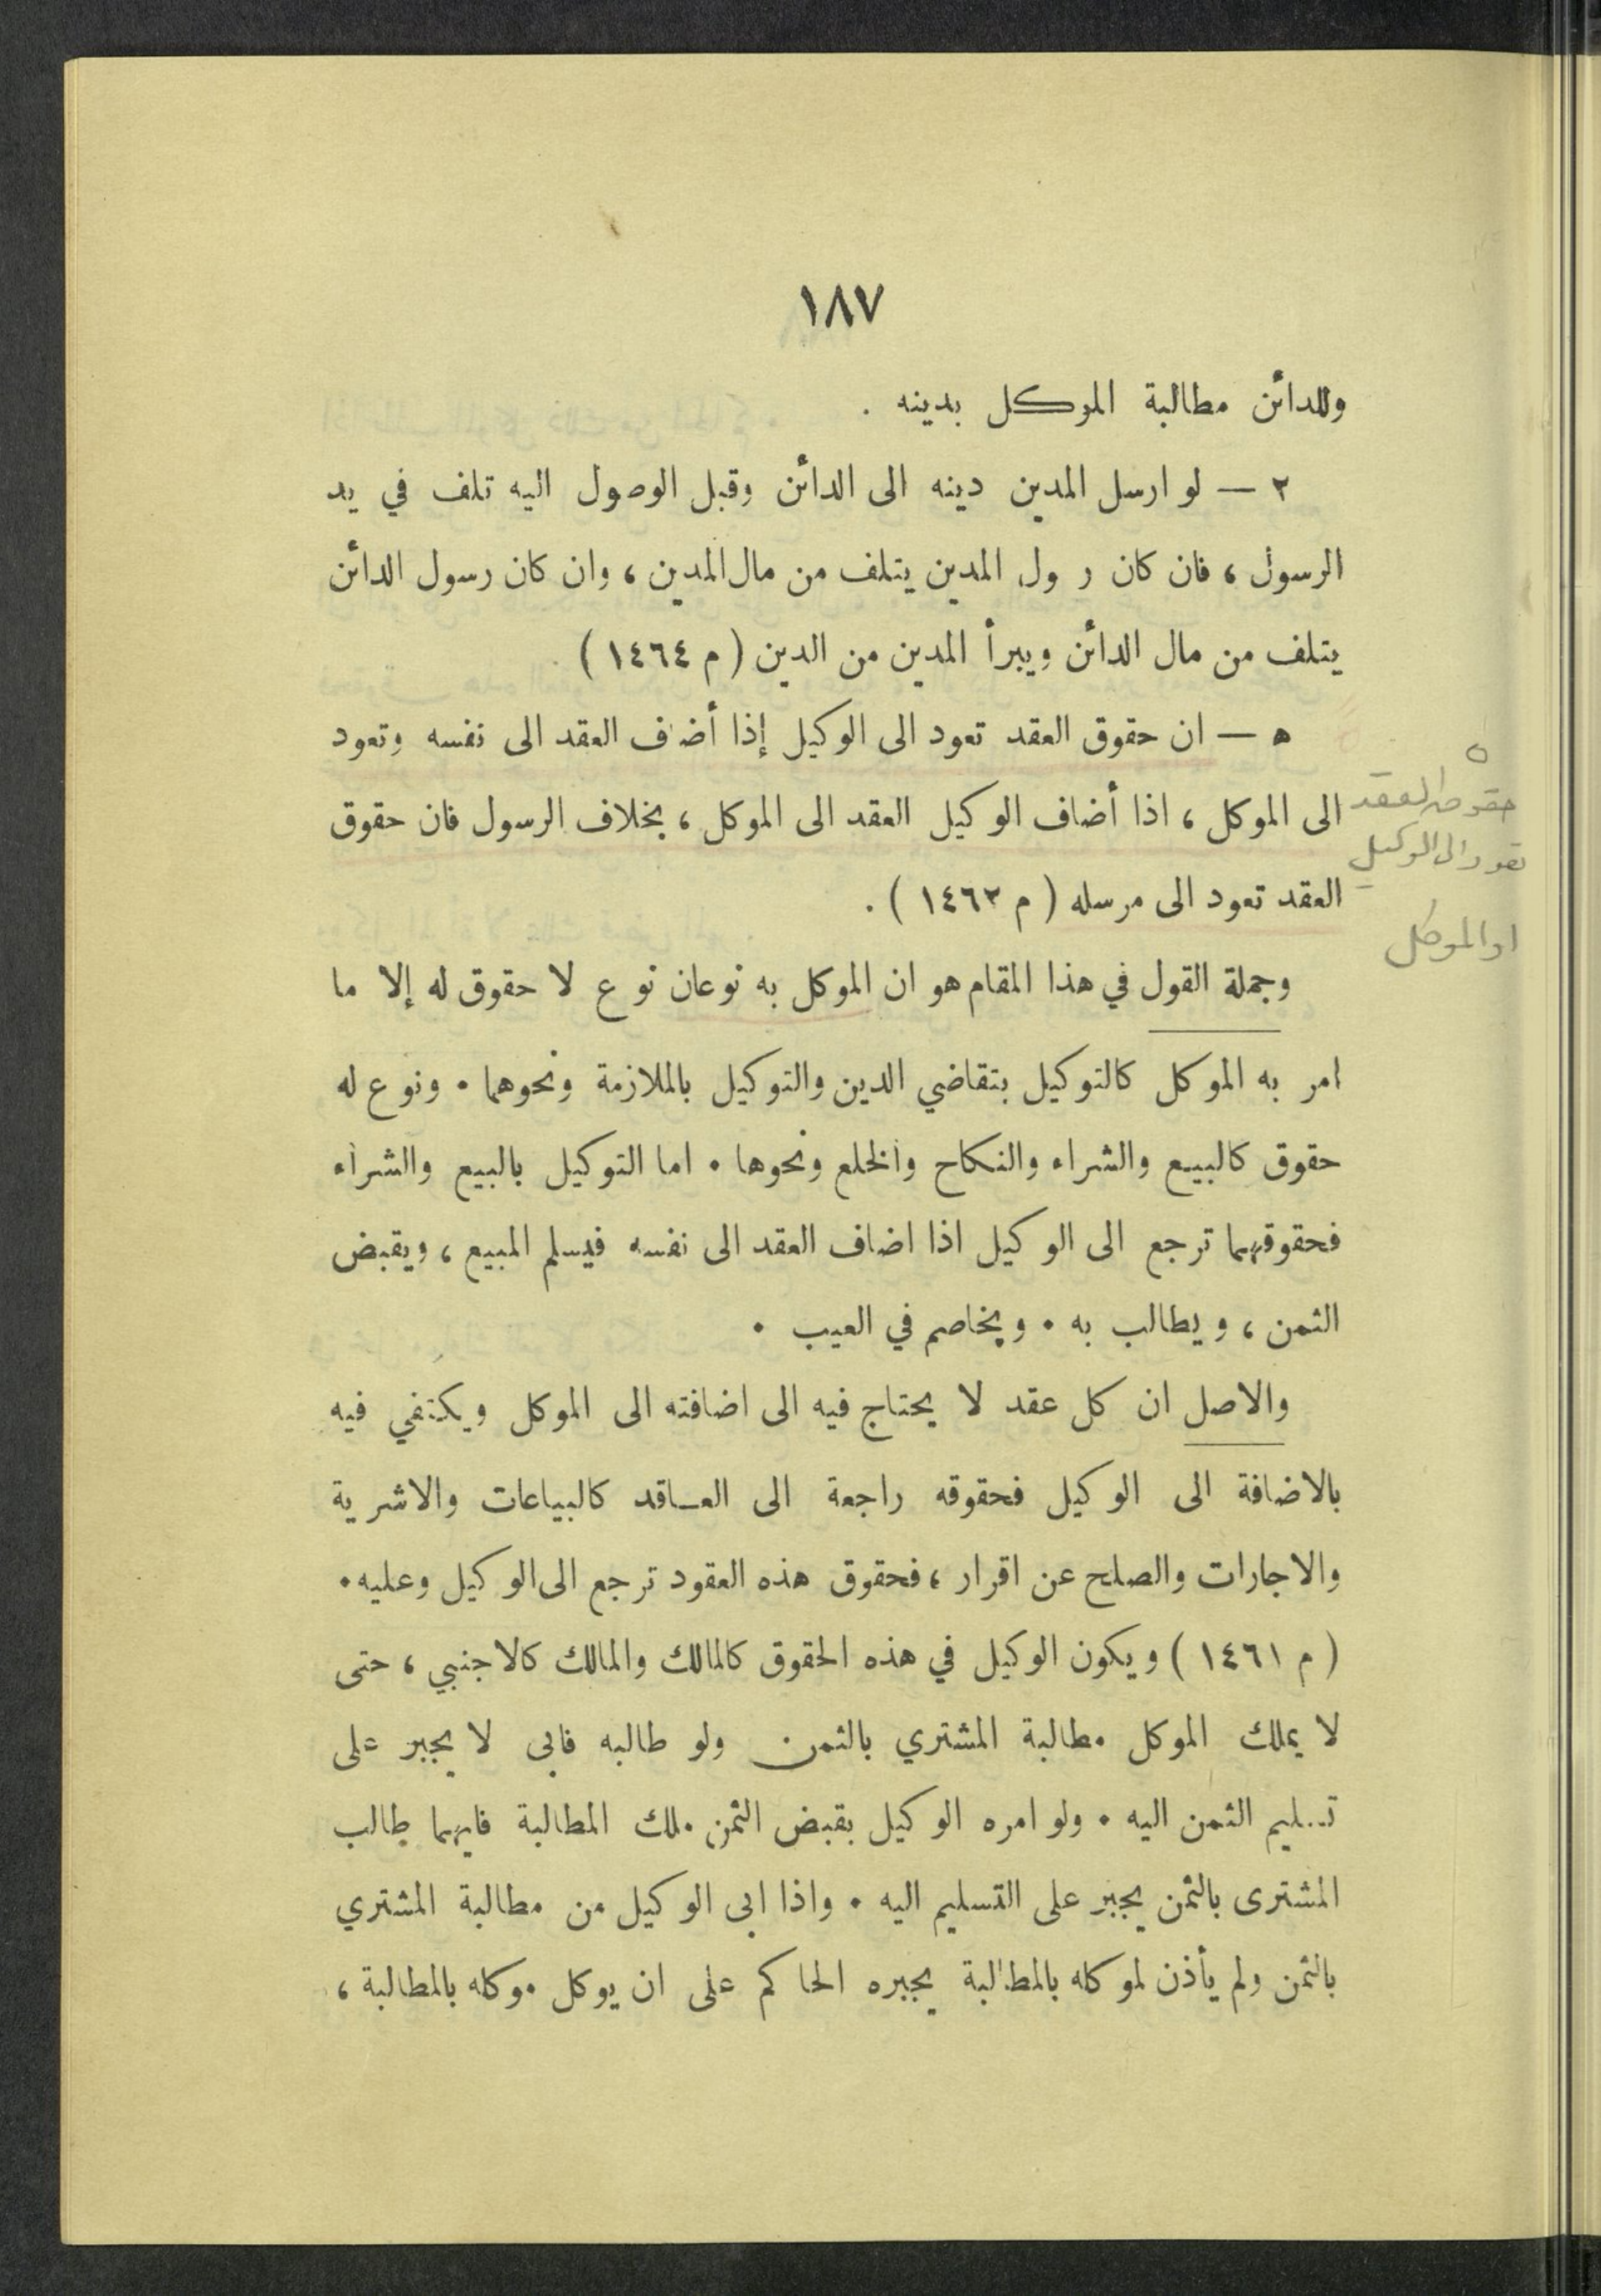 ١٨٧
وللدائن مطالبة الموكل بدينه .
٢ — لو ارسل المدين دينه الى الدائن وقبل الوصول اليه تلف في يد
الرسول ، فان كان ر ول المدين يتلف من مال المدين ، وان كان رسول الدائن
يتلف من مال الدائن ويبرأ المدين من الدين ( م ١٤٦٤ )
٥ — ان حقوق العقد تعود الى الوكيل إذا أضاف العقد الى نفسه وتعود
الى الموكل ، اذا أضاف الوكيل العقد الى الموكل ، بخلاف الرسول فان حقوق
العقد تعود الى مرسله ( م ١٤٦٣ ) .
٥
حقوق العقد
تعود الى الوكيل
او الموكل
وجملة القول في هذا المقام هو ان الموكل به نوعان نوع لا حقوق له إلا ما
امر به الموكل كالتوكيل بتقاضي الدين والتوكيل بالملازمة ونحوهما . ونوع له
حقوق كالبيع والشراء والنكاح والخلع ونحوها . اما التوكيل بالبيع والشراء
فحقوقهما ترجع الى الوكيل اذا اضاف العقد الى نفسه فيسلم المبيع ، ويقبض
الثمن ، ويطالب به . ويخاصم في العيب .
والاصل ان كل عقد لا يحتاج فيه الى اضافته الى الموكل ويكتفي فيه
بالاضافة الى الوكيل فحقوقه راجعة الى العاقد كالبياعات والاشرية
والاجارات والصلح عن اقرار ، فحقوق هذه العقود ترجع الى الوكيل وعليه .
( م ١٤٦١ ) ويكون الوكيل في هذه الحقوق كالمالك والمالك كالاجنبي ، حتى
لا يملك الموكل مطالبة المشتري بالثمن ولو طالبه فابى لا يجبر على
تسليم الثمن اليه . ولو امره الوكيل بقبض الثمن ملك المطالبة فايهما طالب
المشترى بالثمن يجبر على التسليم اليه . واذا ابى الوكيل من مطالبة المشتري
بالثمن ولم يأذن لموكله بالمطالبة يجبره الحاكم على ان يوكل موكله بالمطالبة ،